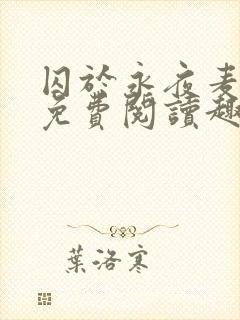 囚於永夜麦
免費閱讀趣
葉洛寒